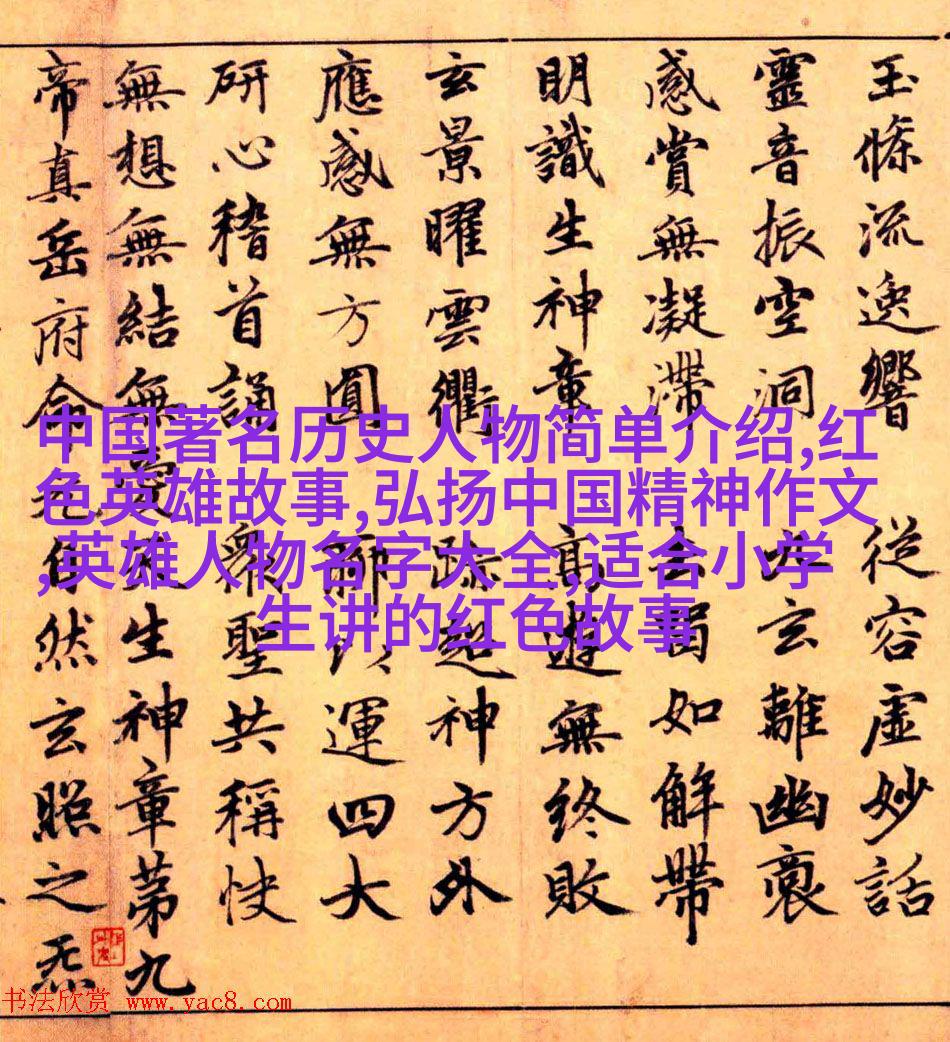 玉條流逸響 從容虛妙話
靈音振空洞 玄離幽裒
感賞無凝滯 如解帶
明識生神章 高遊無終敗
玄景曜雲衢 超神方外
應感無方圓 運四大
研心稽首誦 衆聖共稱快
無想無結無愛 生神章第九
帝真岳府命 自然玄照之炁
中国著名历史人物简单介绍,红
色英雄故事,弘扬中国精神作文
,英雄人物名字大全,适合小学
生讲的红色故事
书法欣赏 www.yac8.com